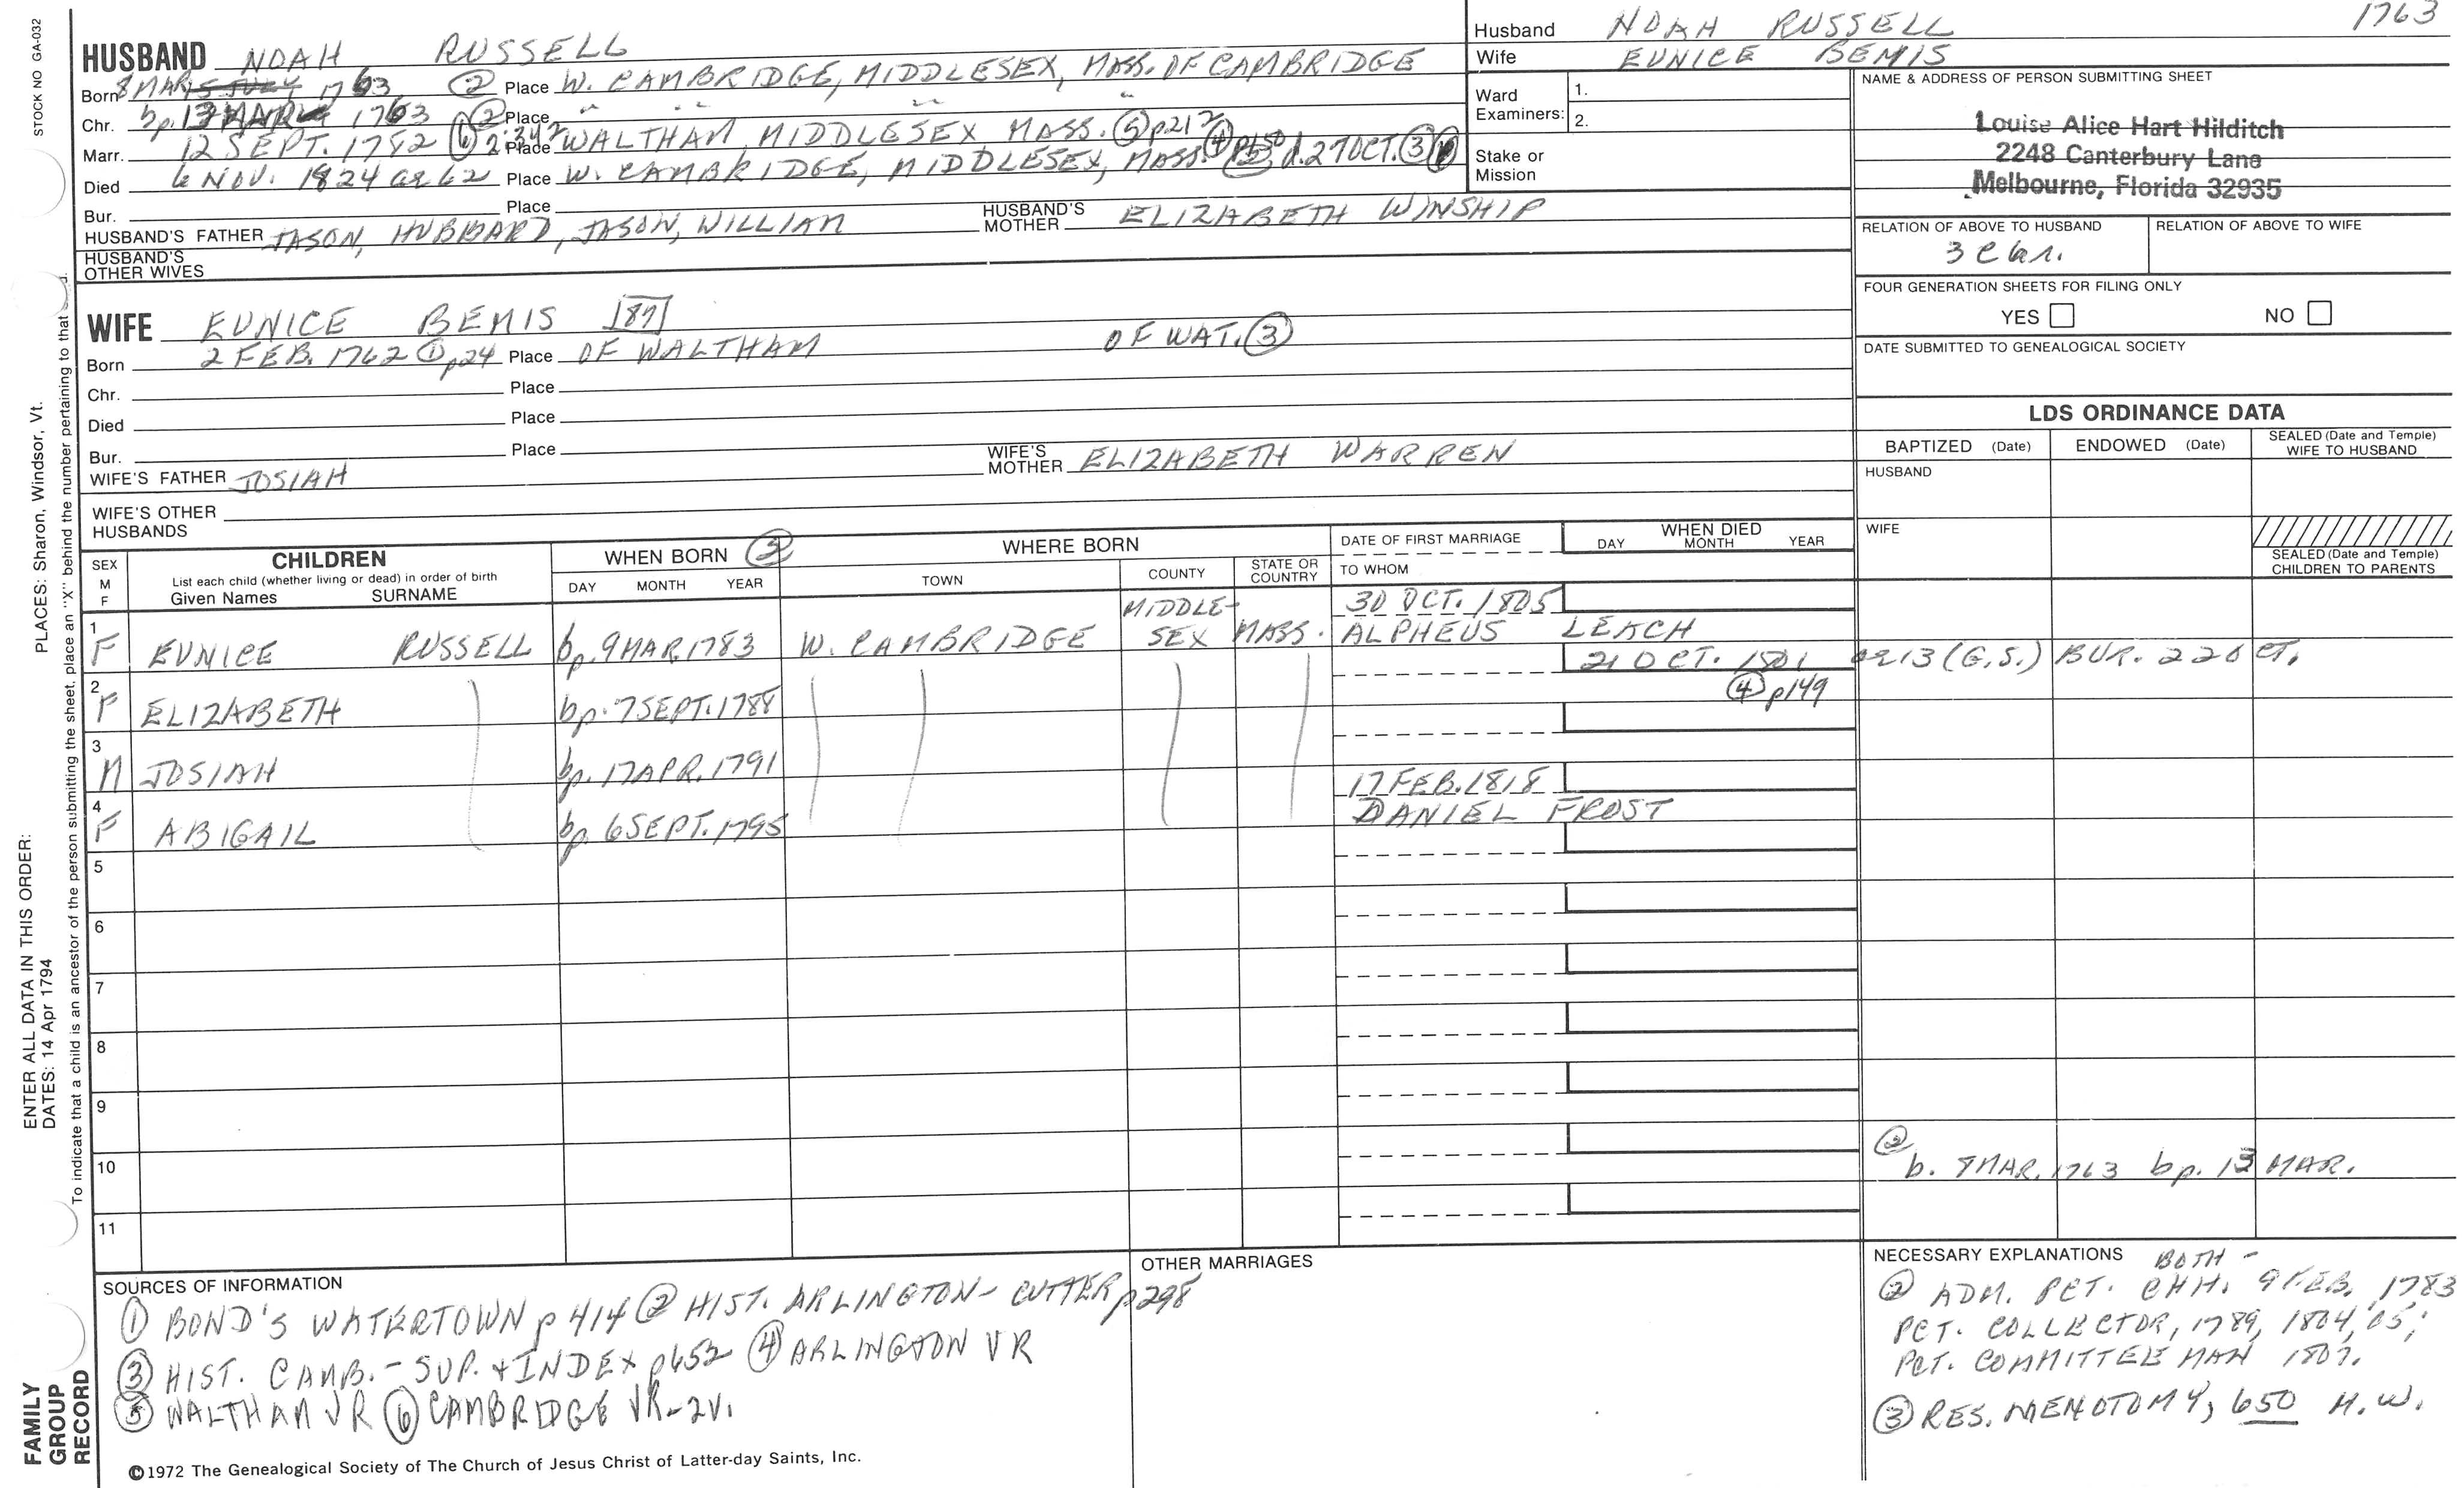 STOCK NO GA-032
PLACES: Sharon, Windsor, Vt.
ENTER ALL DATA IN THIS ORDER:
DATES: 14 Apr 1794
To indicate that a child is an ancestor of the person submitting the sheet, place an "X" behind the number pertaining to that
FAMILY GROUP RECORD
HUSBAND NOAH RUSSELL
Born 8 MAR 1763 ② Place W. CAMBRIDGE, MIDDLESEX, MASS. OF CAMBRIDGE
Chr. bp. 13 MAR 1763 ② Place " " " "
Marr. 12 SEPT. 1782 ⑥ 2:342 Place WALTHAM, MIDDLESEX MASS. ⑤ p.212
Died 6 NOV. 1824 ae 62 Place W. CAMBRIDGE, MIDDLESEX, MASS. ④ p150 d. 27 OCT. ③
Bur. Place
HUSBAND'S FATHER JASON, HUBBARD, JASON, WILLIAM HUSBAND'S MOTHER ELIZABETH WINSHIP
HUSBAND'S OTHER WIVES
WIFE EUNICE BEMIS 187
Born 2 FEB. 1762 ① p24 Place OF WALTHAM OF WAT. ③
Chr. Place
Died Place
Bur. Place
WIFE'S FATHER JOSIAH WIFE'S MOTHER ELIZABETH WARREN
WIFE'S OTHER HUSBANDS
Husband NOAH RUSSELL 1763
Wife EUNICE BEMIS
Ward Examiners: 1.
2.
Stake or Mission
NAME & ADDRESS OF PERSON SUBMITTING SHEET
Louise Alice Hart Hilditch
2248 Canterbury Lane
Melbourne, Florida 32935
RELATION OF ABOVE TO HUSBAND RELATION OF ABOVE TO WIFE
3 C 6r.
FOUR GENERATION SHEETS FOR FILING ONLY
YES NO
DATE SUBMITTED TO GENEALOGICAL SOCIETY
LDS ORDINANCE DATA
BAPTIZED (Date) ENDOWED (Date) SEALED (Date and Temple) WIFE TO HUSBAND
HUSBAND
WIFE
SEALED (Date and Temple) CHILDREN TO PARENTS
SEX M F CHILDREN WHEN BORN ③ WHERE BORN DATE OF FIRST MARRIAGE WHEN DIED
List each child (whether living or dead) in order of birth
Given Names SURNAME DAY MONTH YEAR TOWN COUNTY STATE OR COUNTRY TO WHOM DAY MONTH YEAR
1 F EUNICE RUSSELL bp. 9 MAR. 1783 W. CAMBRIDGE MIDDLE-SEX MASS. 30 OCT. 1805 ALPHEUS LEACH
2 F ELIZABETH bp. 7 SEPT. 1788 21 OCT. 1801 ae 13 (G.S.) BUR. 22 OCT. ④ p149
3 M JOSIAH bp. 17 APR. 1791
4 F ABIGAIL bp. 6 SEPT. 1795 17 FEB. 1818 DANIEL FROST
5
6
7
8
9
10
② b. 8 MAR. 1763 bp. 13 MAR.
11
SOURCES OF INFORMATION
① BOND'S WATERTOWN p 414 ② HIST. ARLINGTON - CUTTER p298
③ HIST. CAMB. - SUP. & INDEX p652 ④ ARLINGTON VR
⑤ WALTHAM VR ⑥ CAMBRIDGE VR - 2V.
OTHER MARRIAGES
NECESSARY EXPLANATIONS BOTH -
② ADM. PCT. CHH. 9 FEB. 1783
PCT. COLLECTOR, 1789, 1804, '05;
PCT. COMMITTEE MAN 1807.
③ RES. MENOTOMY, 650 M.W.
©1972 The Genealogical Society of The Church of Jesus Christ of Latter-day Saints, Inc.